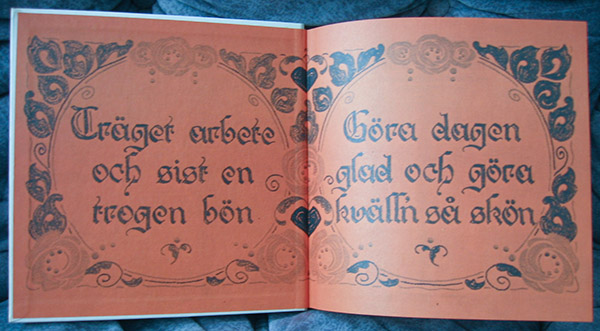 Träget arbete
och sist en
trogen bön
Göra dagen
glad och göra
kväll'n så skön